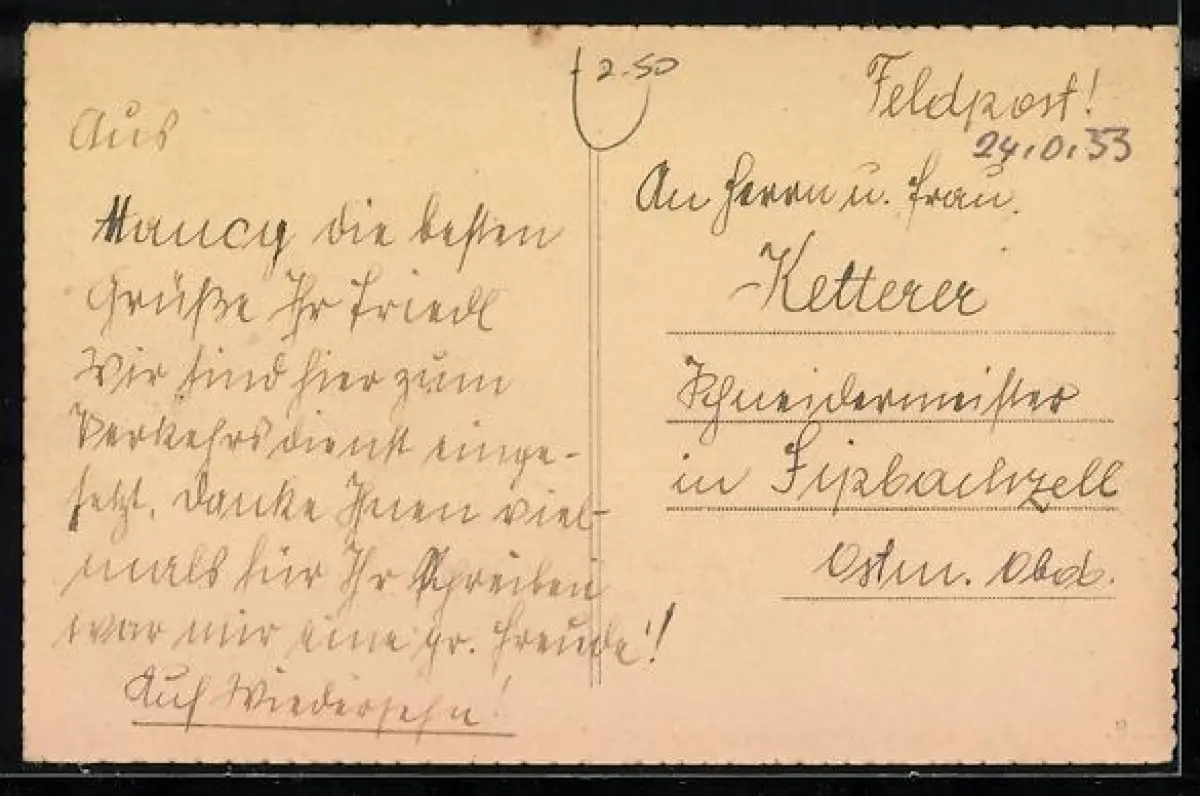 2.50
Feldpost!
24.0.33
Aus
Nancy die besten
Grüße Ihr Friedl
Wir sind hier zum
Verkehrsdienst einge-
setzt. Danke Ihnen viel-
mals für Ihr Schreiben
war mir eine gr. Freude!!
Auf Wiedersehn!
An Herrn u. Frau.
Ketterer
Schneidermeister
in